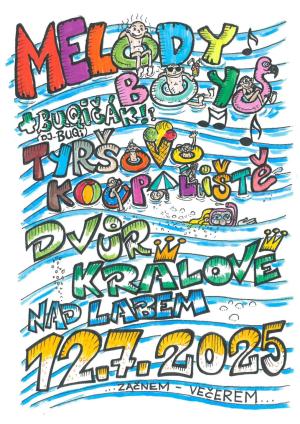 MELODY
BOYS
+BUGIČÁK!!
(DJ-BUGI)
TYRŠOVO
KOUPALIŠTĚ
DVŮR
KRÁLOVÉ
NAD LABEM
12.7.2025
...ZAČNEM - VEČEREM...